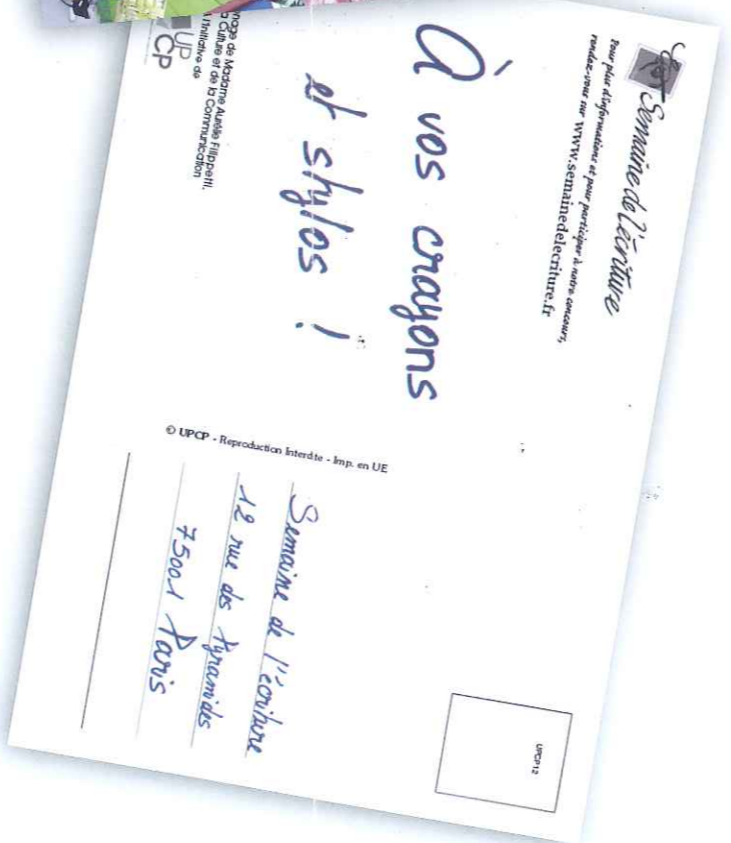 Semaine de l'écriture
Pour plus d'informations et pour participer à notre concours,
rendez-vous sur www.semainedelecriture.fr
À vos crayons
et stylos !
nage de Madame Aurélie Filippetti,
a Culture et de la Communication
l'initiative de
UP
CP
© UPCP - Reproduction Interdite - Imp. en UE
UPCP12
Semaine de l'écriture
12 rue des Pyramides
75001 Paris